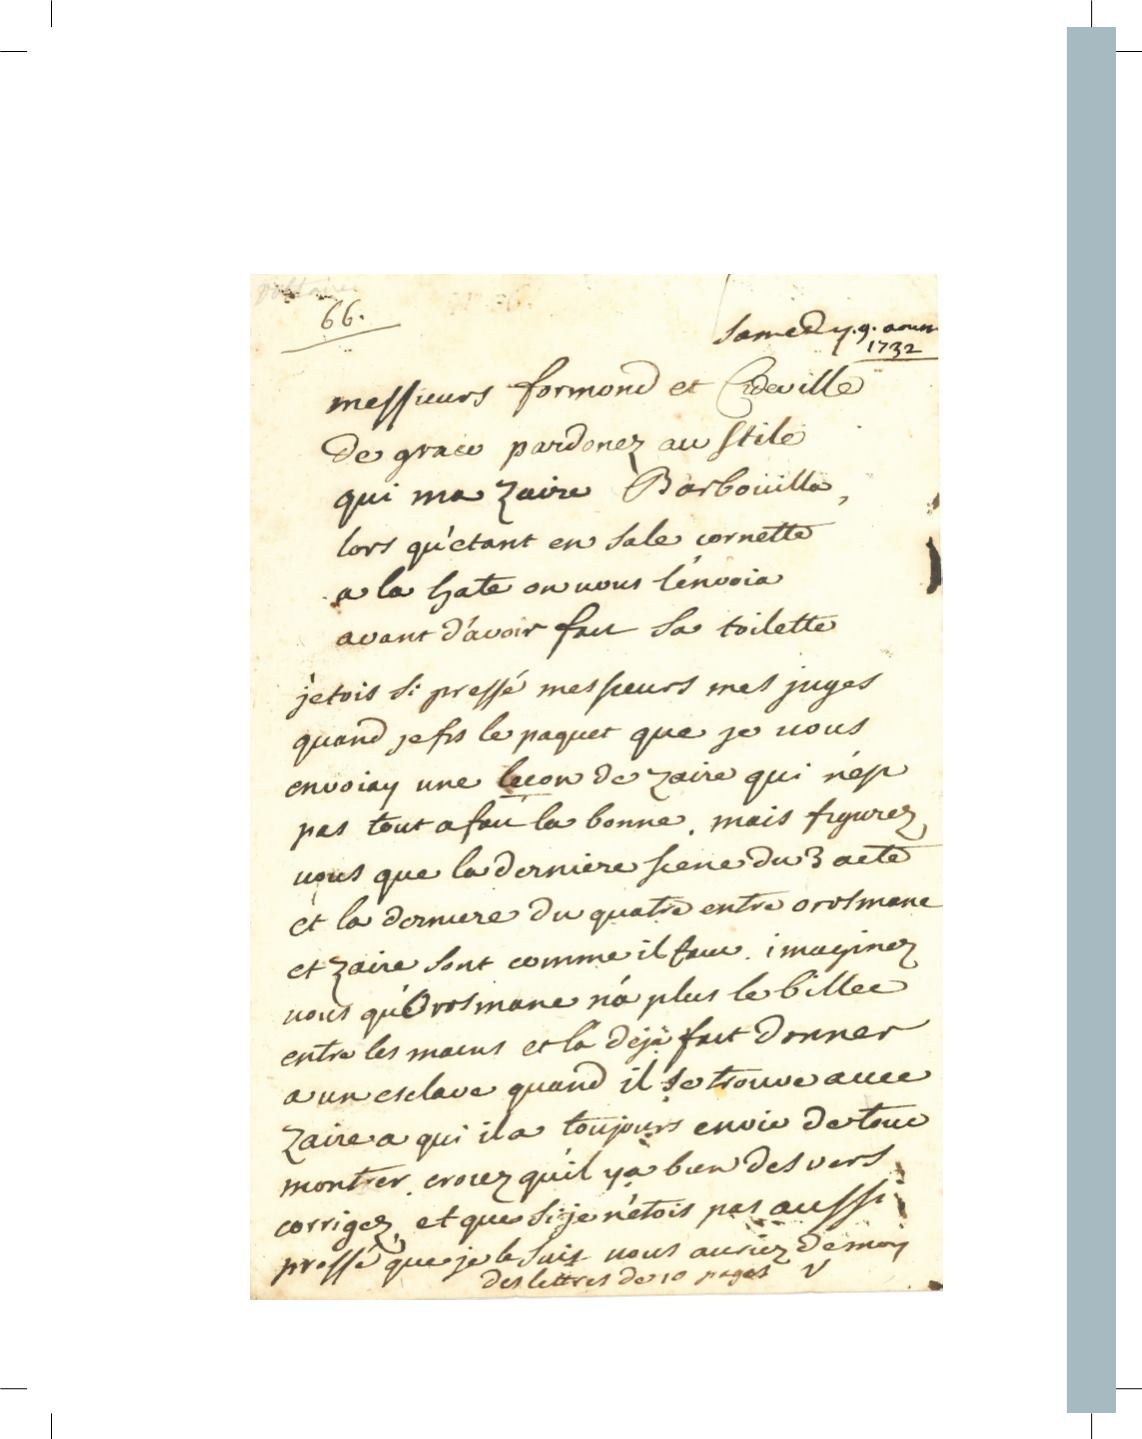 voltaire
66.
Samedy. 9. aoust
1732
messieurs formond et Cideville
de grace pardonez au stile
qui ma zaire Barbouilla,
lors qu'etant en sale cornette
a la hate on vous l'envoia
avant d'avoir fait sa toilette
j'etois si pressé messieurs mes juges
quand je fis le paquet que je vous
envoiay une lecon de zaire qui n'est
pas tout a fait la bonne. mais figurez
vous que la derniere scene du 3 acte
et la derniere du quatre entre orosmane
et zaire sont comme il faut. imaginez
vous qu'Orosmane n'a plus le billet
entre les mains et l'a déjà fait donner
a un esclave quand il se trouve avec
Zaire a qui il a toujours envie de tout
montrer. croiez qu'il y a bien des vers
corrigez, et que si je n'etois pas aussi
pressé que je le suis vous auriez de moy
des lettres de 10 pages V